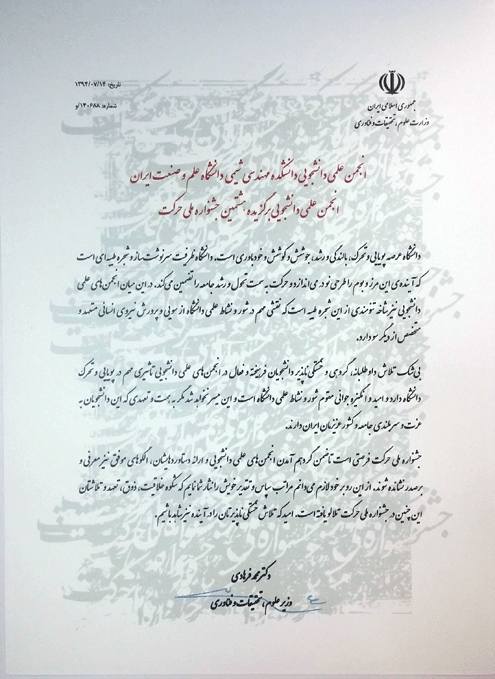 جمهوری اسلامی ایران
وزارت علوم، تحقیقات و فناوری
تاریخ: ۱۳۹۴/۰۷/۱۴
شماره: ۱۴۰۶۸۸/و
انجمن علمی دانشجویی دانشکده مهندسی شیمی دانشگاه علم و صنعت ایران
انجمن علمی دانشجویی برگزیده هشتمین جشنواره ملی حرکت
دانشگاه عرصه پویایی و تحرک، بالندگی و رشد، جوشش و کوشش و خودباوری است. دانشگاه ظرفیت سرنوشت‌ساز و شجره طیبه‌ای است
که آینده‌ی این مرز و بوم را طرحی نو در می‌اندازد و حرکت به سمت تحول و رشد جامعه را تضمین می‌کند. در این میان انجمن‌های علمی
دانشجویی نیز شاخه تنومندی از این شجره طیبه است که نقشی مهم در شور و نشاط علمی دانشگاه از سویی و پرورش نیروی انسانی متعهد و
متخصص از دیگر سو دارد.
بی‌شک تلاش داوطلبانه، گروهی و خستگی ناپذیر دانشجویان فرهیخته و فعال در انجمن‌های علمی دانشجویی تاثیری مهم در پویایی و تحرک
دانشگاه دارد و امید و انگیزه جوانی مقوم شور و نشاط علمی دانشگاه است و این میسر نخواهد شد مگر به همت و تعهدی که این دانشجویان به
عزت و سربلندی جامعه و کشور عزیزمان ایران دارند.
جشنواره ملی حرکت فرصتی است تا ضمن گرد هم آمدن انجمن‌های علمی دانشجویی و ارائه دستاوردهایشان، الگوهای موفق نیز معرفی و
بر صدر نشانده شوند. از این رو بر خود لازم می‌دانم مراتب سپاس و تقدیر خویش را نثار شما نمایم که شکوه خلاقیت، ذوق، تعهد و تلاشتان
این چنین در جشنواره ملی حرکت تلالو یافته است. امید که تلاش خستگی ناپذیرتان را در آینده نیز شاهد باشیم.
دکتر محمد فرهادی
وزیر علوم، تحقیقات و فناوری